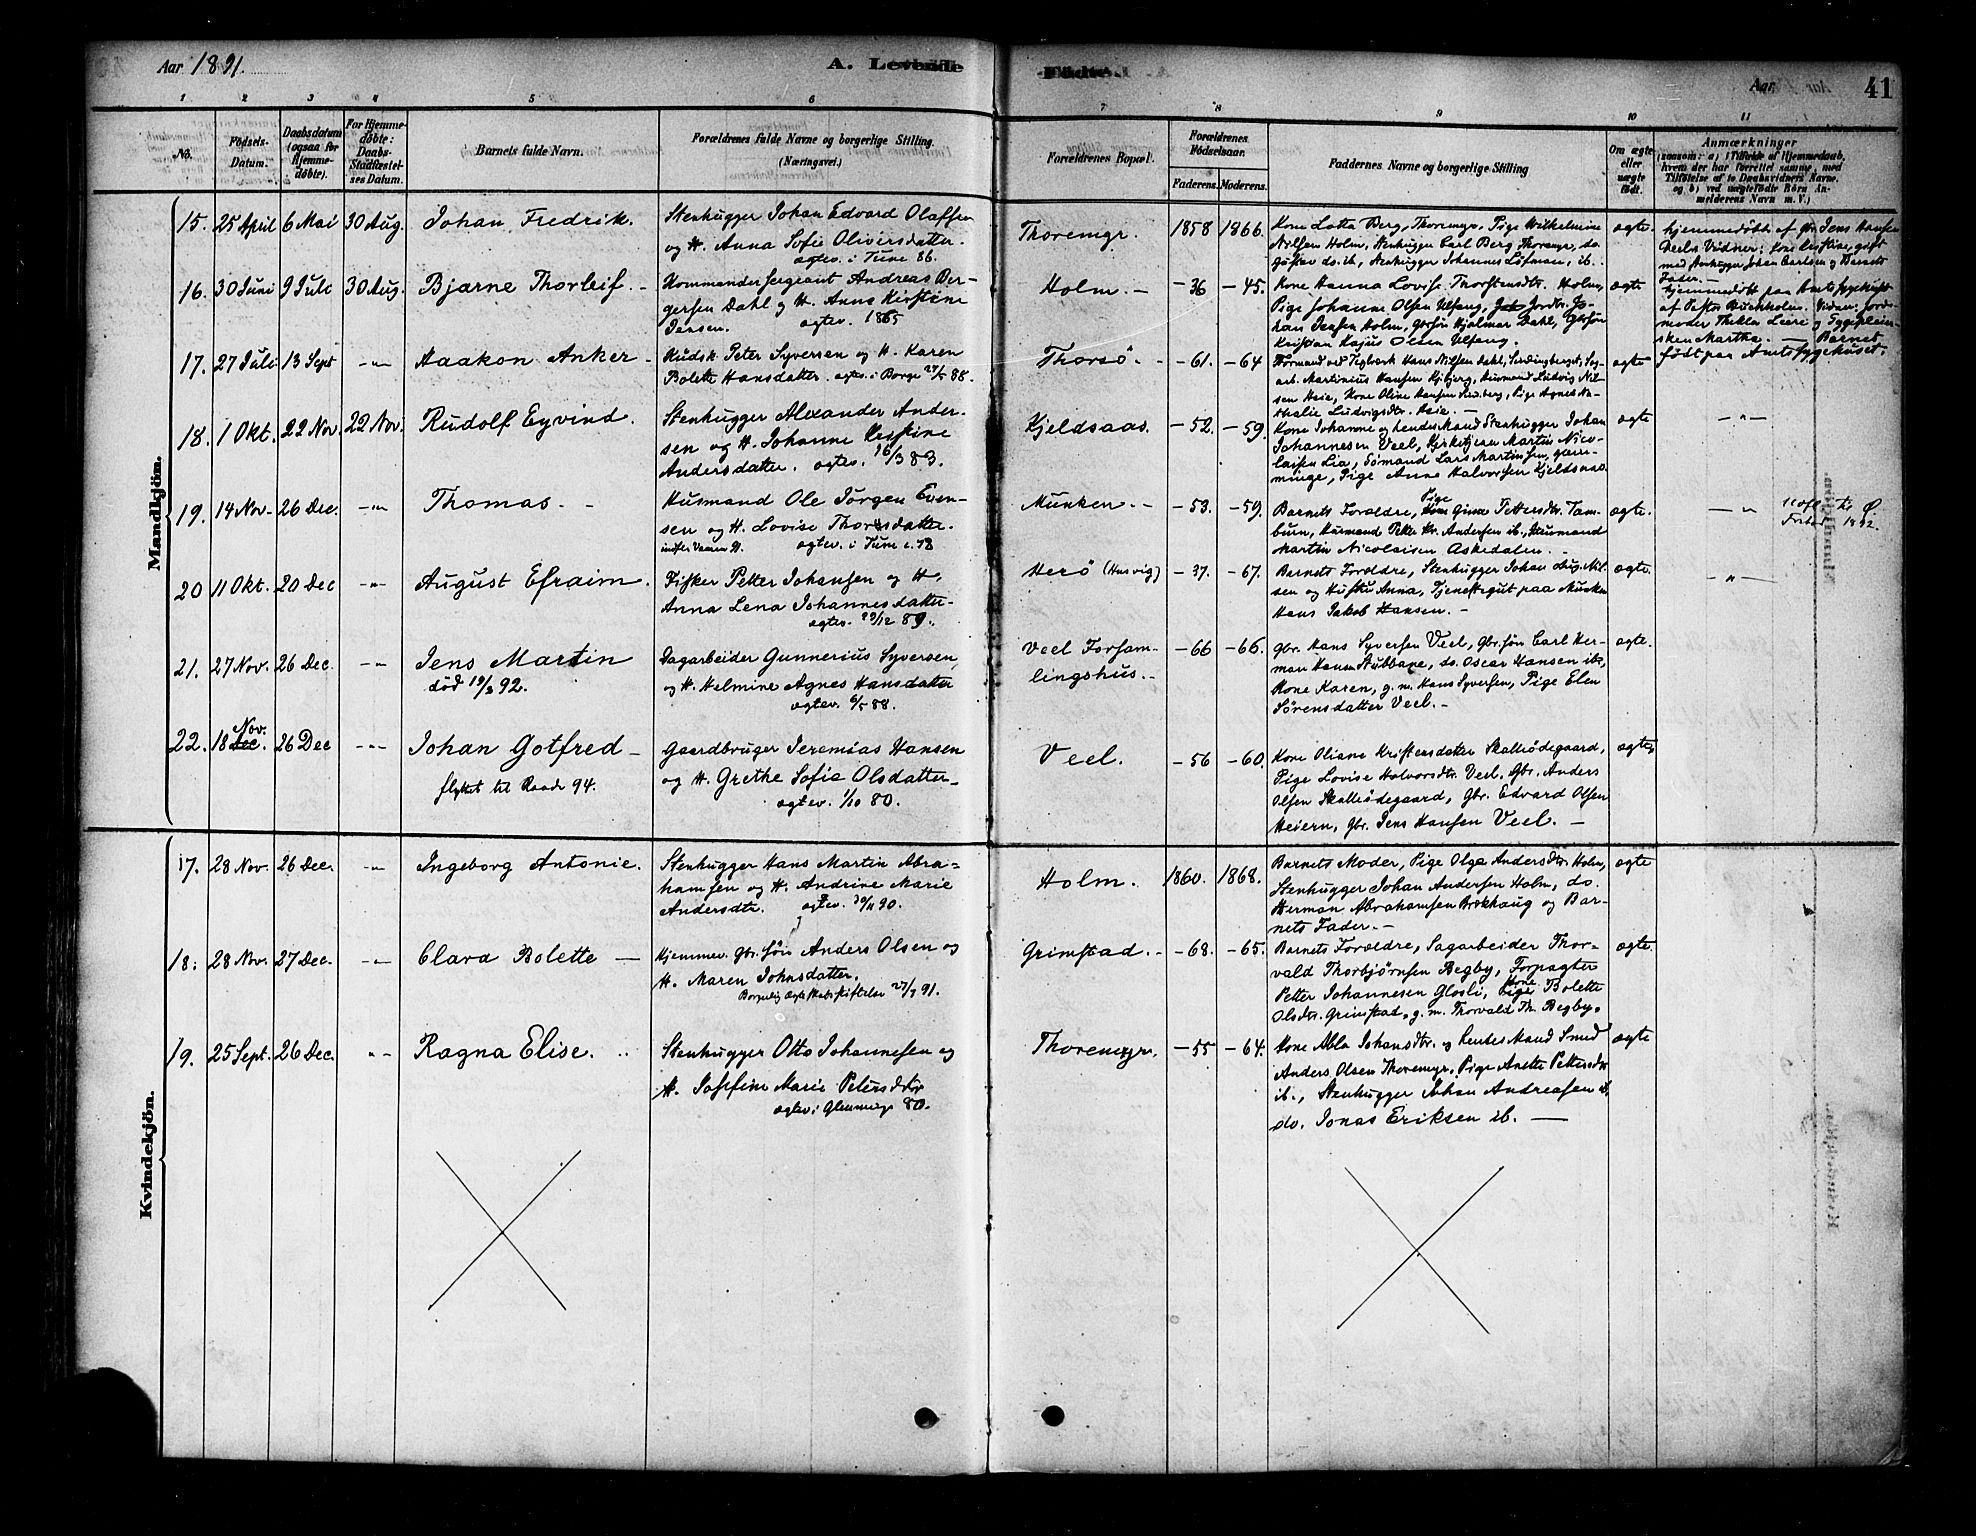 Aar 1891.
A. Levende
Födte.
Aar
41
1 2 3 4 5 6 7 8 9 10 11
No.
Födsels-
Datum.
Daabsdatum
(ogsaa for
Hjemme-
döbte).
For Hjemme-
döbte:
Daabs-
Stadfæstel-
ses Datum.
Barnets fulde Navn.
Forældrenes fulde Navne og borgerlige Stilling.
(Næringsvei.)
Forældrenes Bopæl.
Forældrenes
Födselsaar.
Faderens. Moderens.
Faddernes Navne og borgerlige Stilling
Om ægte
eller
uægte
født.
Anmærkninger
(saasom: a) i Tilfælde af Hjemmedaab,
hvem der har forrettet samme, med
Tilföielse af to Daabsvidners Navne,
og b) ved uægtefödte Börn An-
melderens Navn m. V.)
Mandkjön.
15. 25 April 6 Mai 30 Aug. Johan Fredrik.
Stenhugger Johan Edvard Olaffen
og H. Anna Sofie Oliversdatter.
ægtev. i Tune 86.
Thoremyr. 1858 1866.
Kone Lotta Berg, Thoremyr, Pige Wilhelmine
Nilsen Holm, Stenhugger Carl Berg Thoremyr, do
Gustav do. ib, Stenhugger Johannes Löfman, ib.
ægte.
hjemmedöbt af Gbr. Jens Hansen
med Stenhugger Johan Carlsen og Barnets
Fader. —
16. 30 Juni 9 Juli 30 Aug. Bjarne Thorleif. —
Kommandersergeant Andreas Ber-
gersen Dahl og H. Anne Kirstine
Jensen. ægtev. 1865
Holm. — — 36 — 45.
Kone Hanna Lovise Thorstensdtr. Holm,
Pige Johanne Olsen Ulfeng, Jordbr. Jo-
han Jensen Holm, Gbrsön Hjalmar Dahl, Gbrsön
Kristian Kajus Olsen Ulfeng.
ægte
hjemmedöbt paa Amtssygehuset
af Pastor Buchholm. Vidner: Jorde-
moder Thekla Leire og Sygeplei-
sken Martha. — Barnet
födt paa Amtssygehuset.
17. 27 Juli 13 Sept — " — Haakon Anker —
Kudsk Peter Syversen og H. Karen
Bolette Hansdatter. ægtev. i Borge 27/5 88.
Thorsö. — — 61. — 64
Formand ved Teglværk Hans Nilsen Dahl,
arb. Martinius Hansen Kjibjerg, Husmand Ludvig Nil-
sen Haie, Kone Oline Hansen
thalie Ludvigsdtr. Haie. —
ægte
18. 1 Okt. 22 Nov. 22 Nov. Rudolf Eyvind.
Stenhugger Alexander Ander-
sen og H. Johanne Kristine
Andersdatter. ægtev. 16/3 83.
Kjeldsaas. — 52. — 59.
Kone Johanne og hendes Mand Stenhugger Johan
Johannesen Veel, Kirketjener Martin Nico-
laisen Lia, Sömand Lars Martinsen, Glem-
minge, Pige Anne Halvorsen Kjeldsaas
ægte
— " —
19. 14 Nov. 26 Dec. — " — Thomas. —
Husmand Ole Jörgen Even-
sen og H. Lovise Thorsdatter.
ægtev. i Tune c. 78
Munken. — — 53. — 59.
Barnets Forældre, Pige Gina Pettersdtr. Tam-
burn, Husmand Petter Kr. Andersen ib., Husmand
Martin Nicolaisen Askedalen. —
ægte.
— "
20 11 Okt. 20 Dec — " — August Efraim.
Fisker Petter Johansen og H.
Anna Lena Johannesdatter.
ægtev. 29/12 89.
Herö (Husvig) — 37. — 67.
Barnets Forældre, Stenhugger Johan Aug. Nil-
sen og Hustru Anna, Tjenestegut paa Munken
Hans Jakob Hansen. —
ægte.
— " —
21. 27 Nov. 26 Dec. — " — Jens Martin
död 19/3 92.
Dagarbeider Gunnerius Syversen,
og H. Helmine Agnes Hansdatter
ægtev. 6/5 88.
Veel Forsam-
lingshus. —
— 66 — 66.
Gbr. Hans Syversen Veel, Gbr. sön Carl Her-
man Hansen Stubbane, do. Oscar Hansen ib,
Kone Karen, g. m. Hans Syversen, Pige Elen
Sörensdatter Veel. —
ægte.
22. 18 Nov. 26 Dec — " — Johan Gotfred —
flyttet til Raade 94.
Gaardbruger Jeremias Hansen
og H. Grethe Sofie Olsdatter —
ægtev. 1/10 80.
Veel. — 56 — 60.
Kone Oliane Kristensdatter Skallerödegaard,
Pige Lovise Halvorsdtr. Veel. Gbr. Anders
Olsen Skallerödegaard, Gbr. Edvard Olsen
Heiern, Gbr. Jens Hansen Veel. —
ægte
Kvindekjön.
17. 28 Nov. 26 Dec. — " — Ingeborg Antonie.
Stenhugger Hans Martin Abra-
hamsen og H. Andrine Marie
Andersdtr. ægtev. 30/11 90.
Holm. 1860. 1868.
Barnets Moder, Pige Olga Andersdtr. Holm,
Stenhugger Johan Andersen Holm, do.
Herman Abrahamsen Brekhaug og Bar-
nets Fader. —
ægte
18. 28 Nov. 27 Dec. — " — Clara Bolette —
Hjemmev. Gbr. sön Anders Olsen og
H. Maren Johnsdatter.
Borgerlig Ægteskabsstiftelse 27/7 91.
Grimstad. — — 68. — 65.
Barnets Forældre, Sagarbeider Thor-
vald Thorbjörnsen Begby, Forpagter
Petter Johannesen Glosli, Kone Bolette
Olsdtr. Grimstad, g. m. Thorvald Th. Begby.
ægte
19. 25 Sept. 26 Dec. " Ragna Elise.
Stenhugger Otto Johannesen og
H. Josefine Marie Petersdtr
ægtev. i Glemminge 80.
Thoremyr. — 55 — 64.
Kone Abla Johansdtr. og hendes Mand Smed
Anders Olsen Thoremyr. Pige Anette Pettersdtr
ib., Stenhugger Johan Andreasen ib,
do. Jonas Eriksen ib. —
ægte